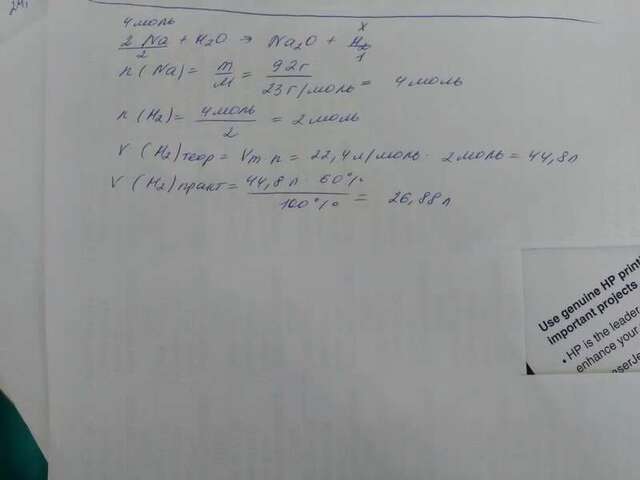 4 моль
x
2 Na + H2O → Na2O + H2
2
1
n (Na) = m/M = 92г / 23 г/моль = 4 моль
n (H2) = 4 моль / 2 = 2 моль
V (H2)теор = Vm n = 22,4 л/моль · 2 моль = 44,8 л
V (H2)практ = 44,8 л · 60% / 100% = 26,88 л
Use genuine HP printi
important projects
• HP is the leader
enhance your
aserJe